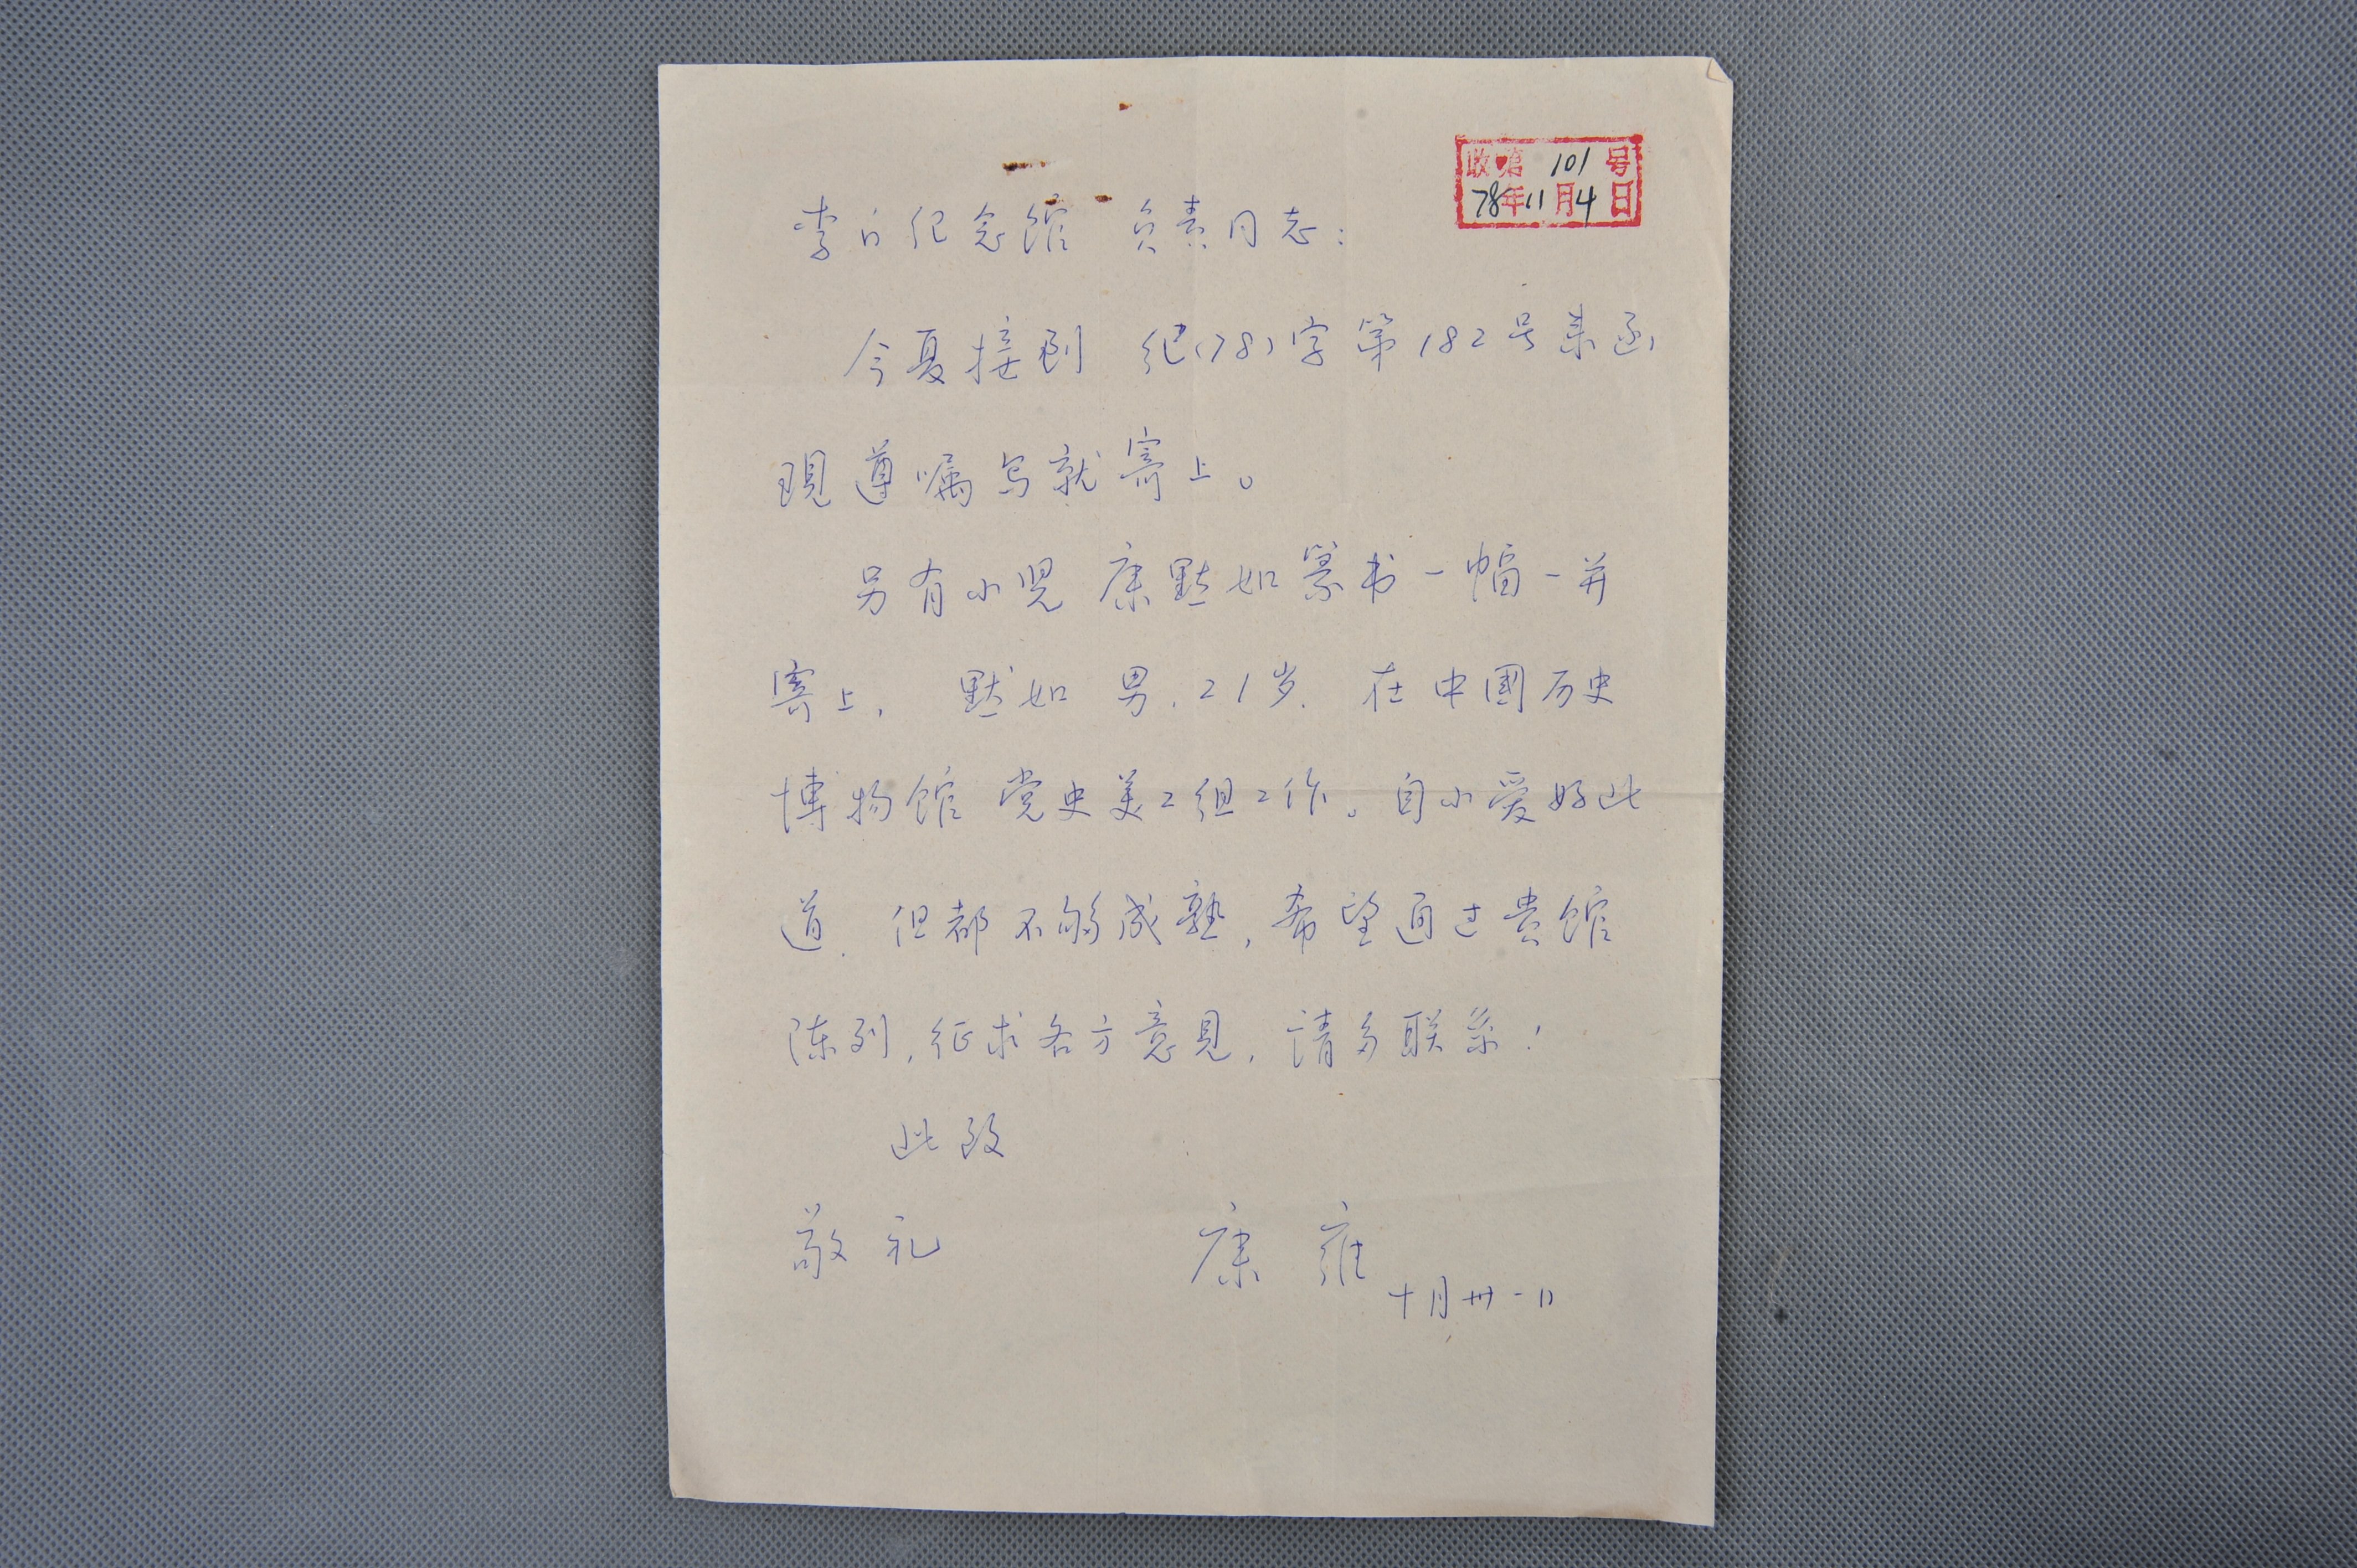 收第101号
78年11月4日
李白纪念馆 负责同志:
今夏接到 纪(78)字第182号来函
現遵嘱写就寄上。
另有小児 康默如篆书一幅一并
寄上, 默如 男.21岁. 在中國历史
博物馆 党史美工组工作。自小爱好此
道. 但都不够成熟, 希望通过贵馆
陈列, 征求各方意見, 請多联系!
此致
敬礼 康雍
十月卅一日